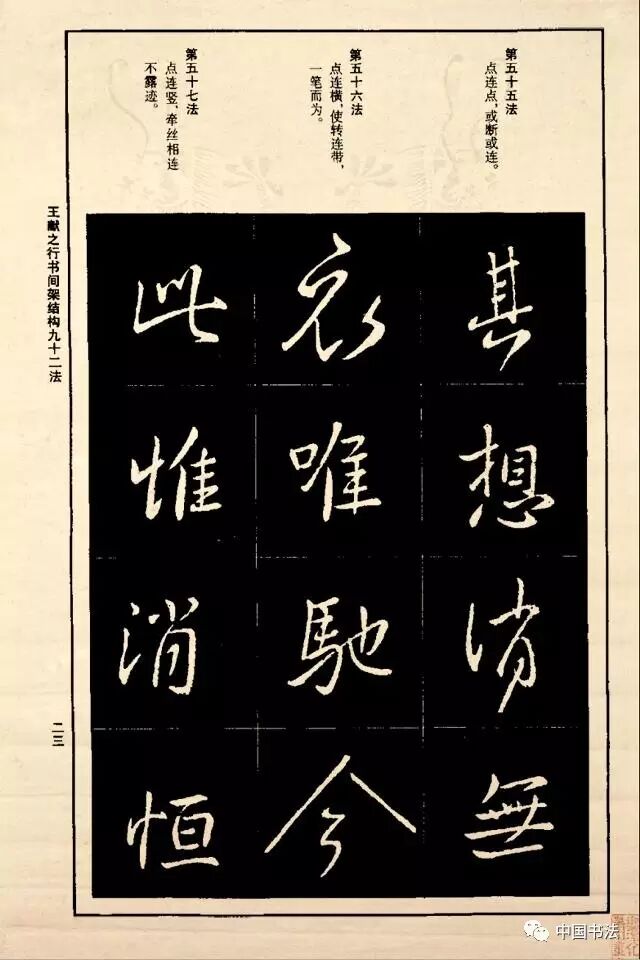 第五十五法
点连点，或断或连。
第五十六法
点连横，使转连带，
一笔而为。
第五十七法
点连竖，牵丝相连
不露迹。
其想消無
衣唯馳今
此惟消恒
王献之行书间架结构九十二法
二三
中国书法